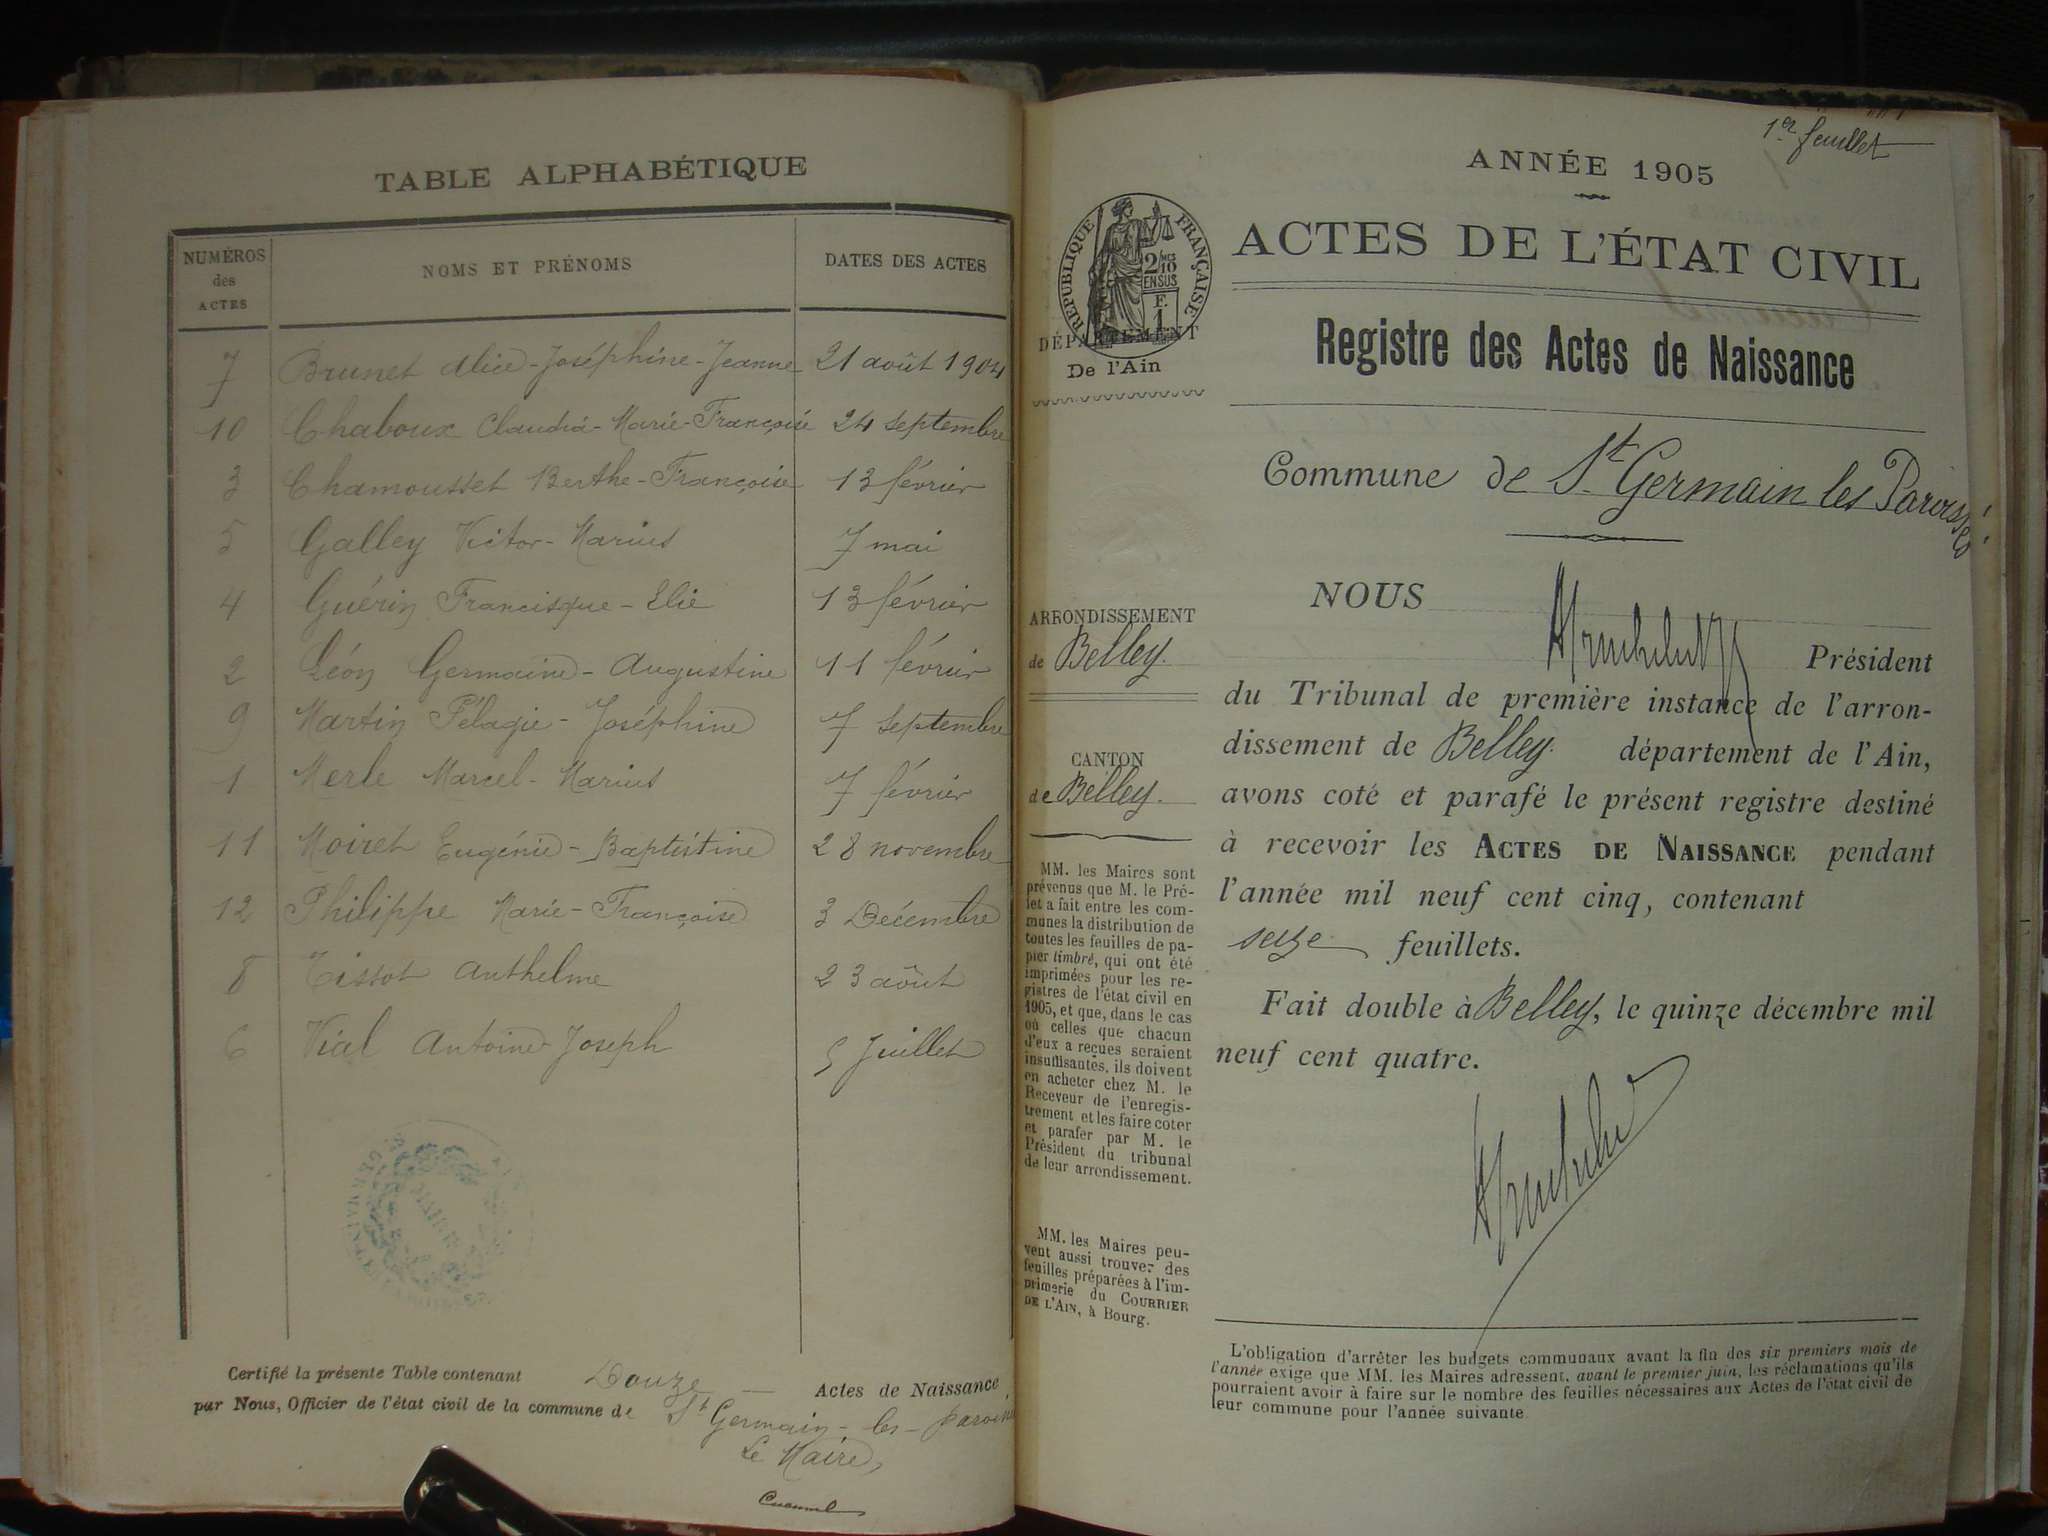 TABLE ALPHABÉTIQUE
NUMÉROS des ACTES NOMS ET PRÉNOMS DATES DES ACTES
7 Brunet Alice-Joséphine-Jeanne 21 août 1904
10 Chaboux Claudia-Marie-Françoise 24 septembre
3 Chamousset Berthe-Françoise 13 février
5 Galley Victor-Marius 7 mai
4 Guérin Francisque-Elie 13 février
2 Léon Germaine-Augustine 11 février
9 Martin Pélagie-Joséphine 7 septembre
1 Merle Marcel-Marius 7 février
11 Moiret Eugénie-Baptistine 28 novembre
12 Philippe Marie-Françoise 3 Décembre
8 Tissot Anthelme 23 août
6 Vial Antoine Joseph 5 Juillet
Certifié la présente Table contenant Douze — Actes de Naissance
par Nous, Officier de l'état civil de la commune de St Germain-les-paroisses
Le Maire,
1er feuillet
ANNÉE 1905
ACTES DE L'ÉTAT CIVIL
RÉPUBLIQUE FRANÇAISE
2/10 MES
EN SUS
F.
1
DÉPARTEMENT
De l'Ain
Registre des Actes de Naissance
Commune de St Germain les Paroisses
ARRONDISSEMENT
de Belley.
CANTON
de Belley.
MM. les Maires sont
prévenus que M. le Pré-
fet a fait entre les com-
munes la distribution de
toutes les feuilles de pa-
pier timbré, qui ont été
imprimées pour les re-
gistres de l'état civil en
1905, et que, dans le cas
où celles que chacun
d'eux a reçues seraient
insuffisantes, ils doivent
en acheter chez M. le
Receveur de l'enregis-
trement et les faire coter
et parafer par M. le
Président du tribunal
de leur arrondissement.
MM. les Maires peu-
vent aussi trouver des
feuilles préparées à l'im-
primerie du COURRIER
DE L'AIN, à Bourg.
NOUS
Président
du Tribunal de première instance de l'arron-
dissement de Belley. département de l'Ain,
avons coté et parafé le présent registre destiné
à recevoir les ACTES DE NAISSANCE pendant
l'année mil neuf cent cinq, contenant
seize feuillets.
Fait double à Belley, le quinze décembre mil
neuf cent quatre.
L'obligation d'arrêter les budgets communaux avant la fin des six premiers mois de
l'année exige que MM. les Maires adressent, avant le premier juin, les réclamations qu'ils
pourraient avoir à faire sur le nombre des feuilles nécessaires aux Actes de l'état civil de
leur commune pour l'année suivante